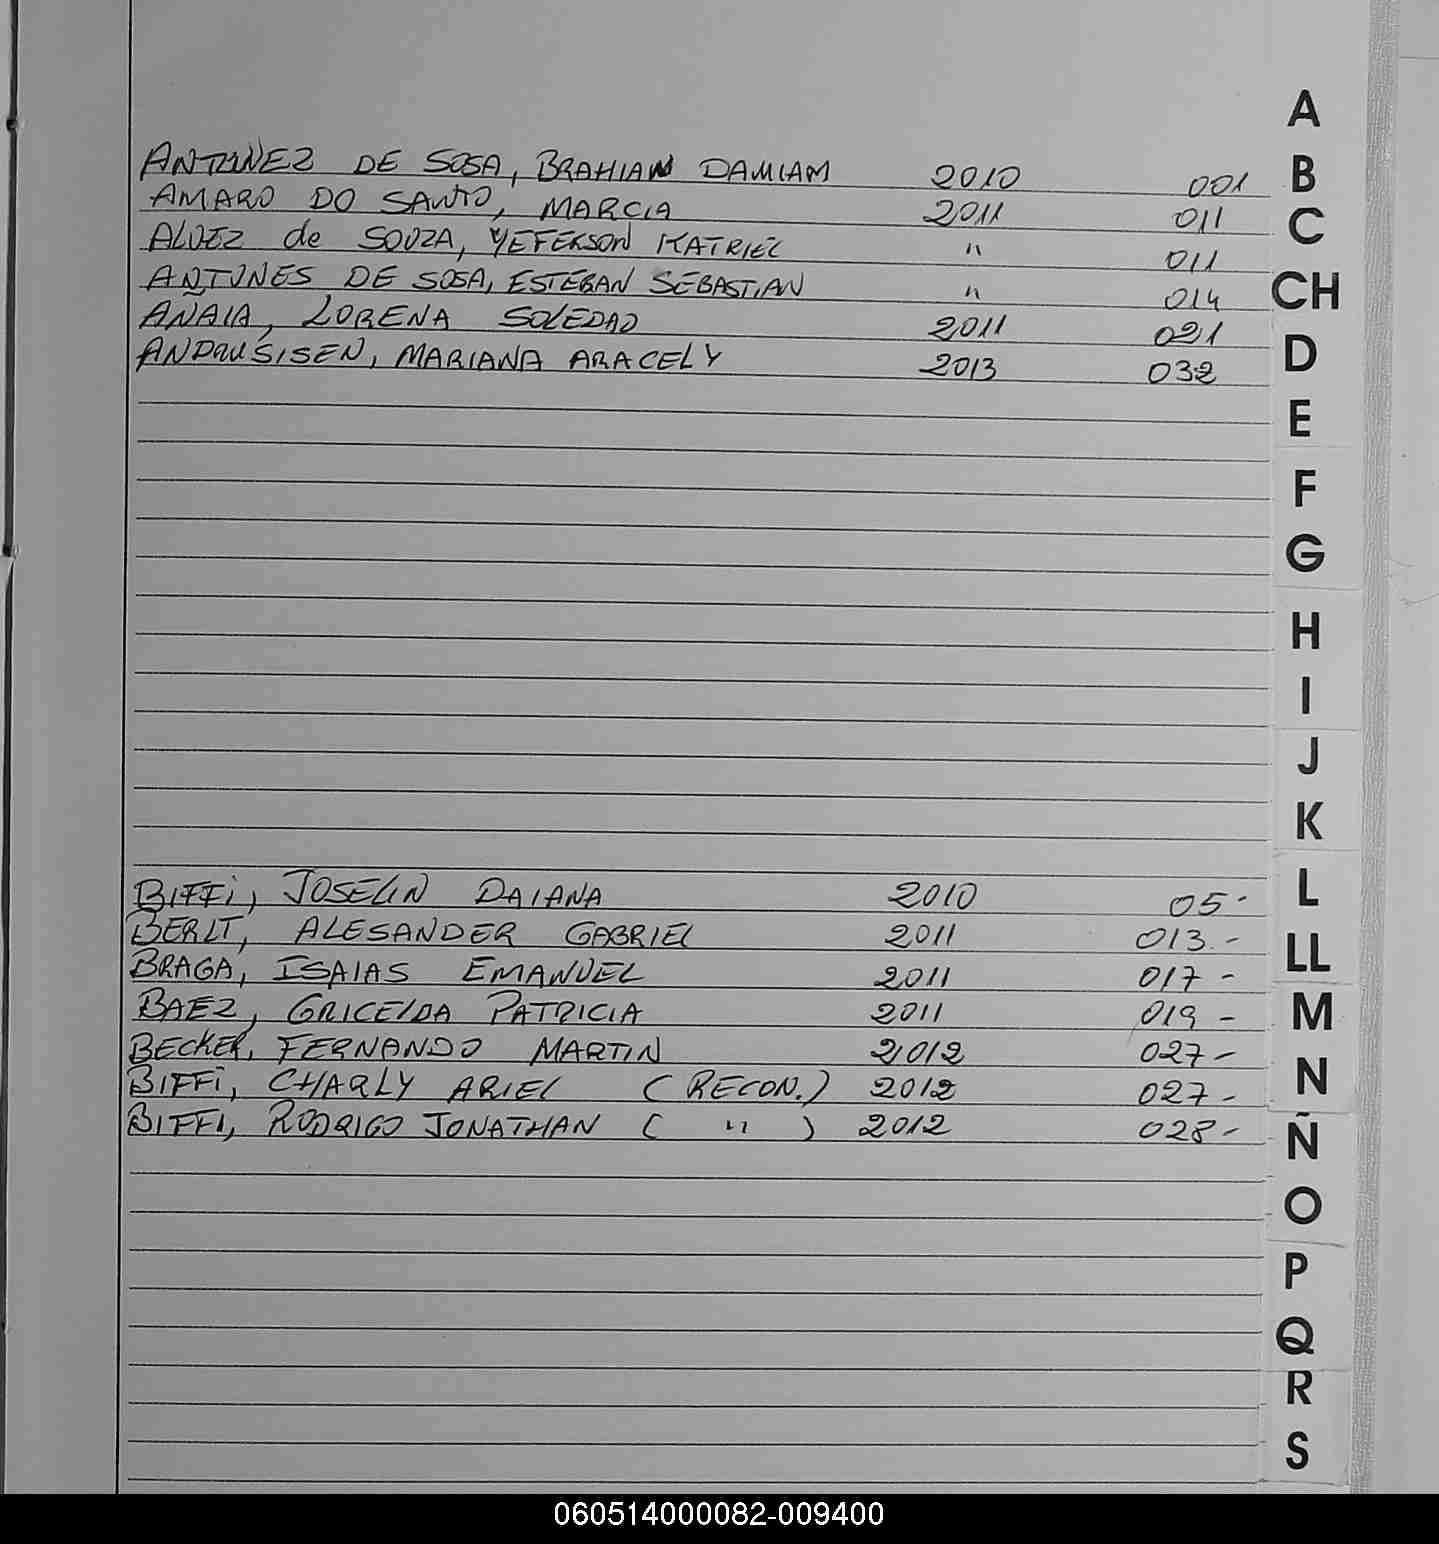 ANTUNEZ DE SOSA, BRAHIAN DAMIAM 2010 001
AMARO DO SANTO, MARCIA 2011 011
ALVEZ de SOUZA, YEFERSON KATRIEL " 011
ANTUNES DE SOSA, ESTEBAN SEBASTIAN " 014
AÑAIA, LORENA SOLEDAD 2011 021
ANDRUSISEN, MARIANA ARACELY 2013 032
BIFFI, JOSELIN DAIANA 2010 05-
BERLT, ALESANDER GABRIEL 2011 013.-
BRAGA, ISAIAS EMANUEL 2011 017-
BAEZ, GRICELDA PATRICIA 2011 019-
BECKER, FERNANDO MARTIN 2012 027-
BIFFI, CHARLY ARIEL (RECON.) 2012 027-
BIFFI, RODRIGO JONATHAN ( " ) 2012 028-
A
B
C
CH
D
E
F
G
H
I
J
K
L
LL
M
N
Ñ
O
P
Q
R
S
060514000082-009400